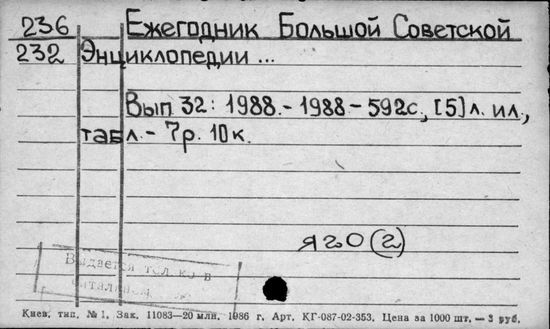 236 Ежегодник Большой Советской
232 Энциклопедии ...
Вып 32: 1988. - 1988 - 592с., [5] л. ил.,
табл. - 7р. 10к.
я2О(2)
Выдается только в
читальном
Киев. тип. № 1. Зак. 11083—20 млн. 1986 г. Арт. КГ-087-02-353. Цена за 1000 шт. — 3 руб.